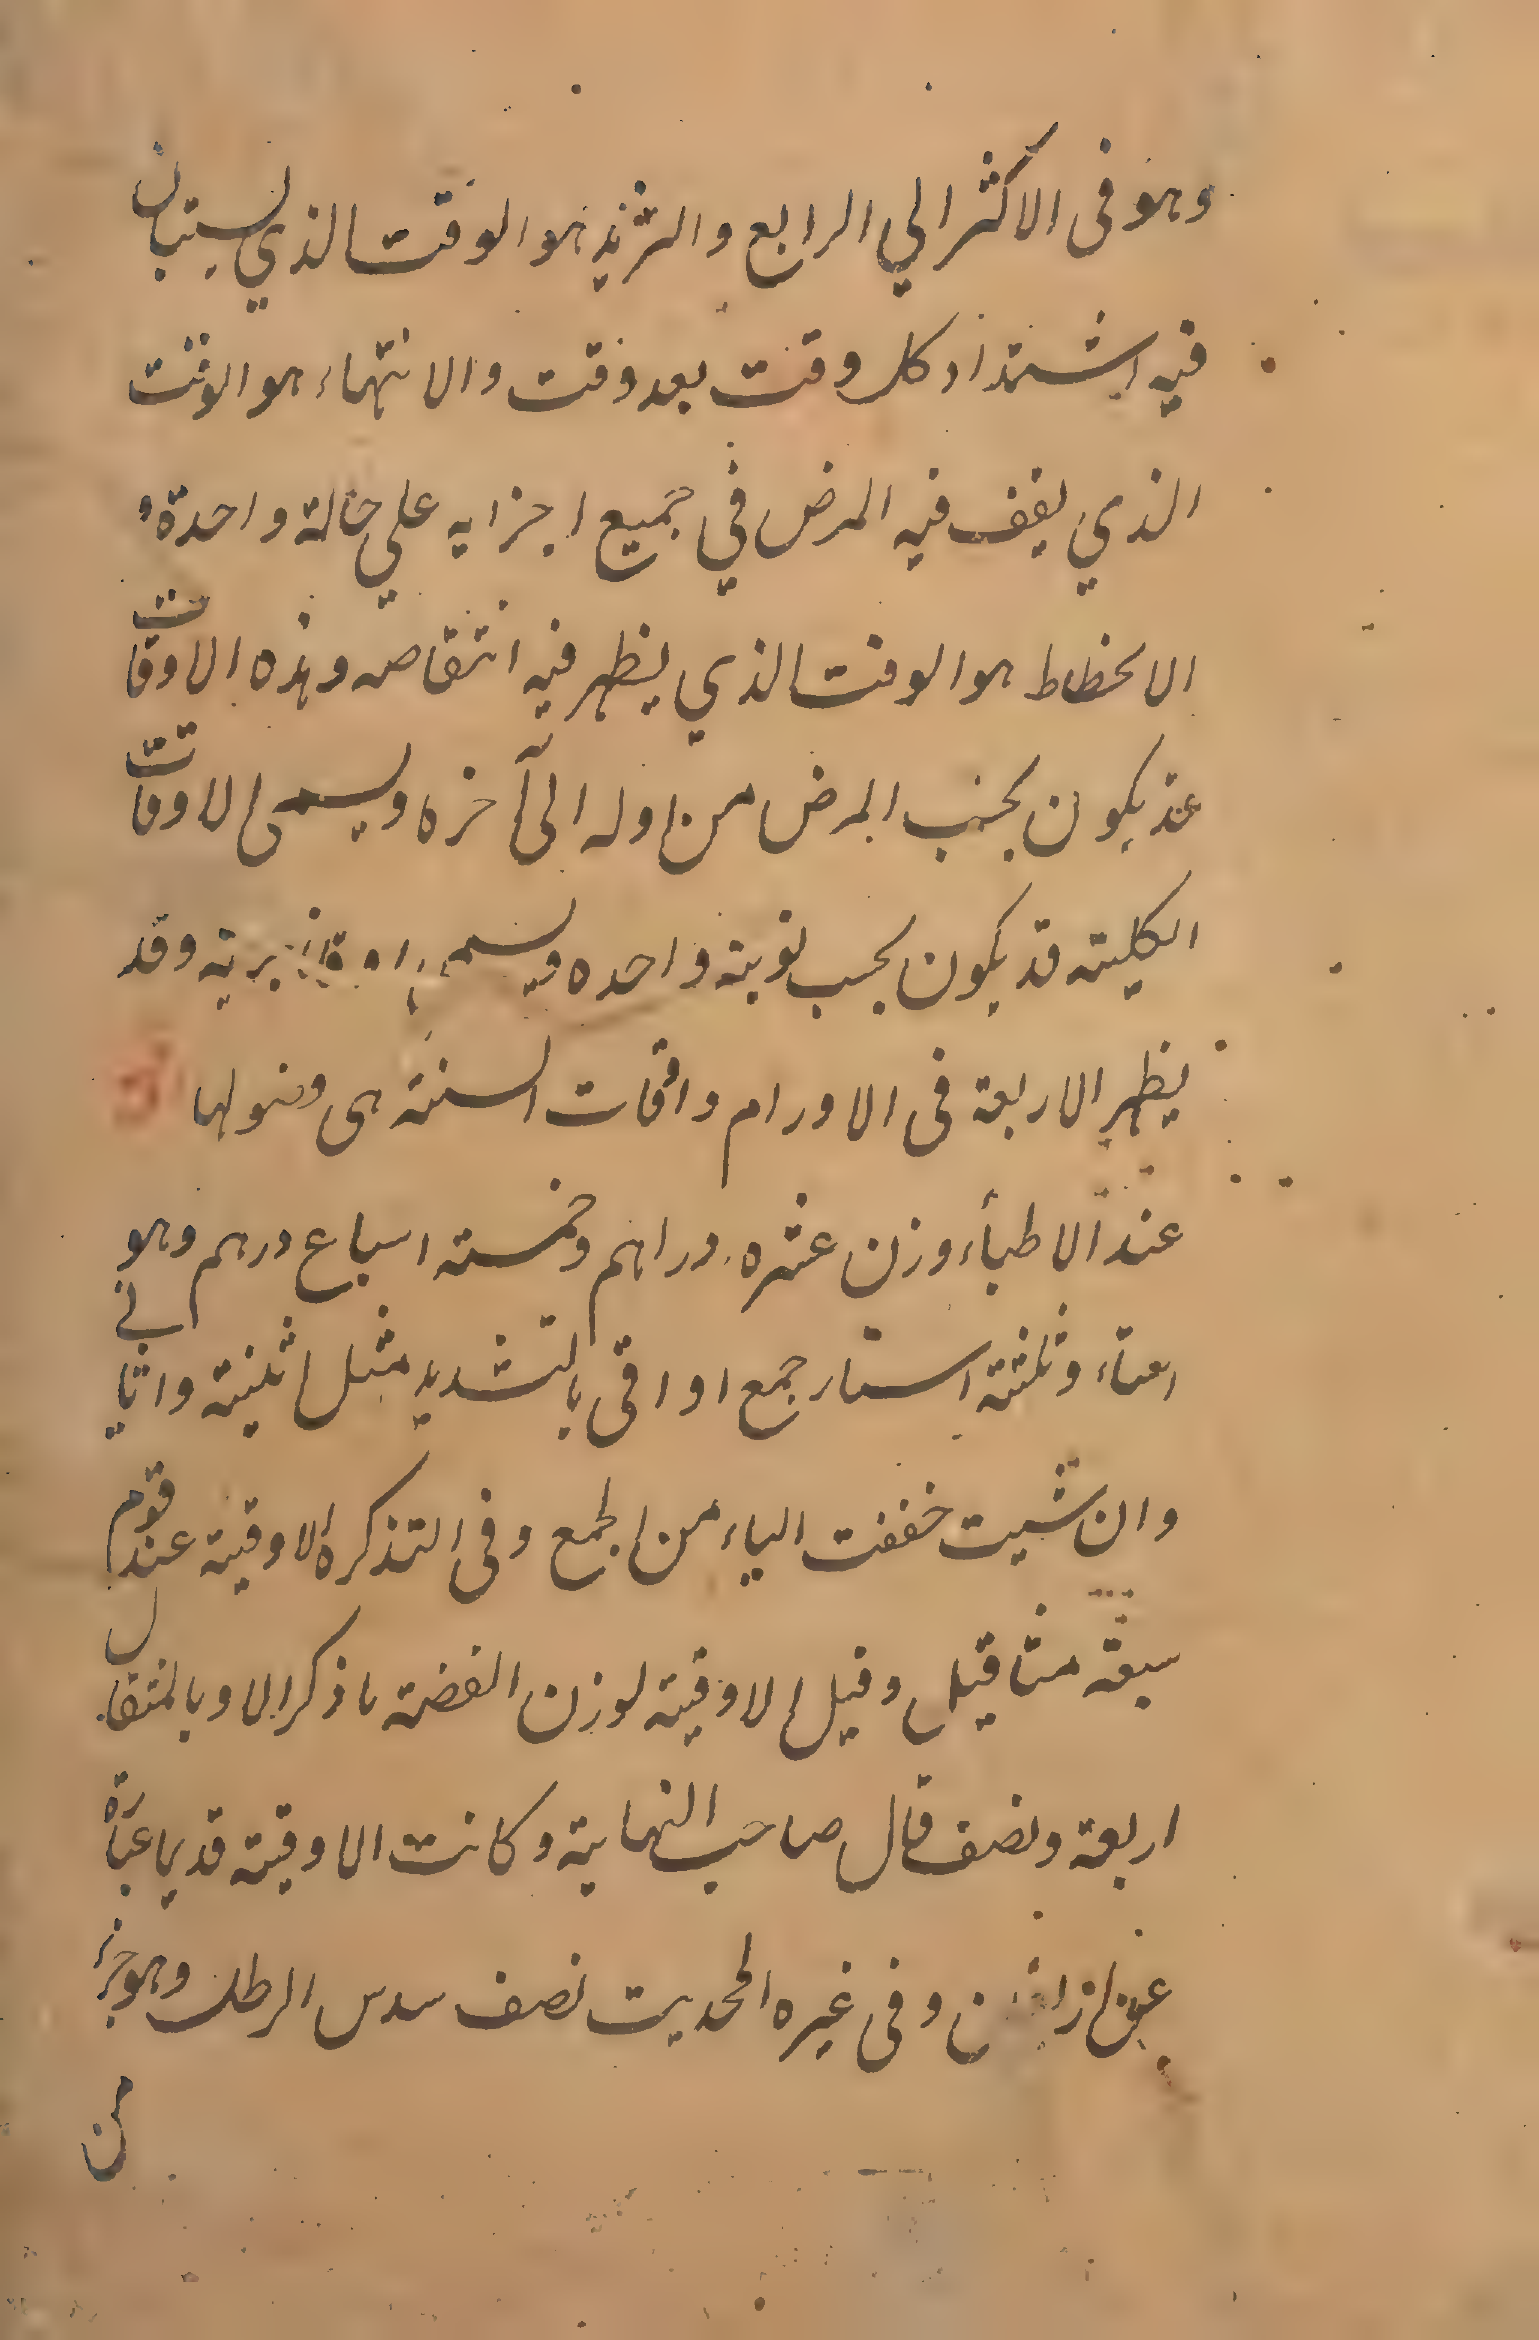 وهو فى الاكثر الي الرابع والتزيد هو الوقت الذي يستبان
فيه اشتداد كل وقت بعد وقت والانتهاء هو الوقت
الذي يقف فيه المرض في جميع اجزايه علي حالة واحدة و
الانحطاط هو الوقت الذي يظهر فيه انتقاصه وهذه الاوقات
قد يكون بحسب المرض من اوله الى آخره ويسمى الاوقات
الكلية قد يكون بحسب نوبة واحده ويسمى وقد
يظهر الاربعة فى الاورام واوقات السنة هى فصولها
عند الاطباء وزن عشره دراهم وخمسة اسباع درهم وهو
وثلثة استار جمع اواقى بالتشديد مثل اثفية واثافي
وان شيت خففت الياء من الجمع وفى التذكره الاوقية عند قوم
سبعة مثاقيل وقيل الاوقية لوزن الفضة ما ذكر الا وبالمثقال
اربعة ونصف قال صاحب النهاية وكانت الاوقية قديما عبارة
عن وفى غيره الحديت نصف سدس الرطل وهو جزء
من